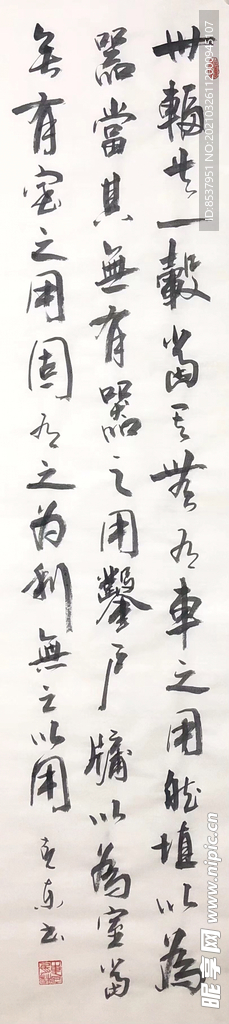 卅輻共一轂當其無有車之用埏埴以為
器當其無有器之用鑿戶牖以為室當
無有室之用固有之為利無之以用
ID:8537951 NO:20210326112000945107
昵享网 www.nipic.cn